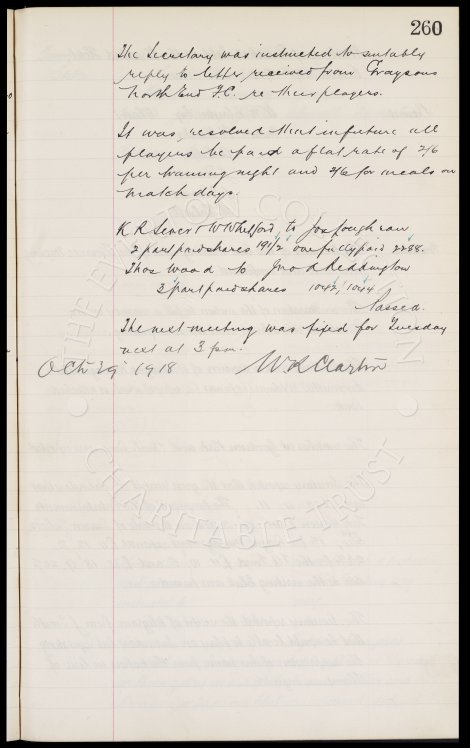 260
The Secretary was instructed to suitably
reply to letter received from Graysons
North End F.C. re their players.
It was, resolved that in future all
players be paid a flat rate of 2/6
per training night and 2/6 for meals on
match days.
K R W to Jos
2 part paid shares 191/2 one fully paid 2288.
Thos Wood to Jno A Reddington
3 part paid shares 1042/1044
Passed.
The next meeting was fixed for Tuesday
next at 3 pm.
Oct 29 1918 W R Clayton
CHARITABLE TRUST